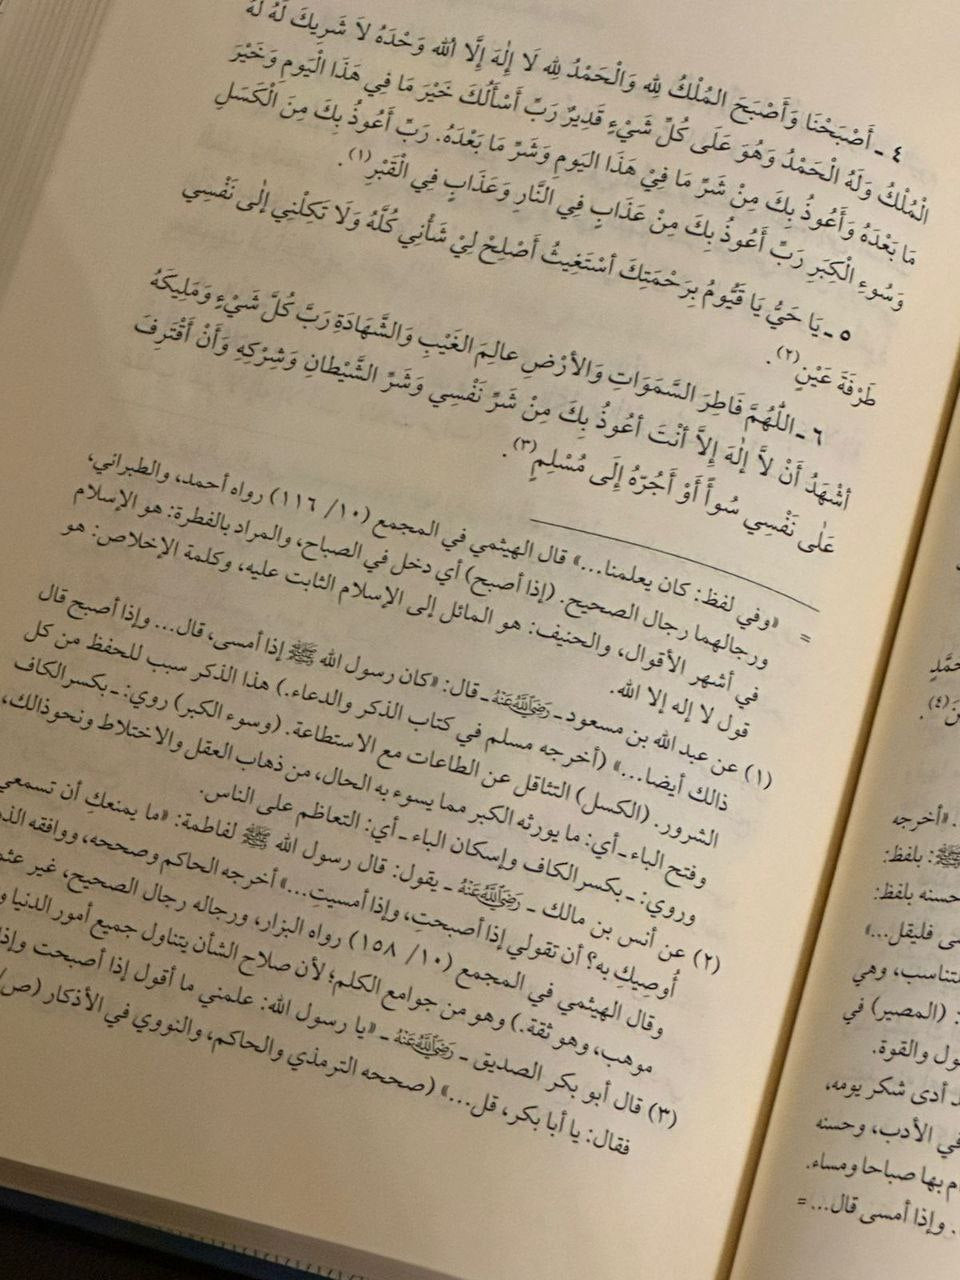 ٤ ـ أَصْبَحْنَا وَأَصْبَحَ المُلْكُ لِلهِ وَالْحَمْدُ لِلهِ لَا إِلٰهَ إِلَّا اللهُ وَحْدَهُ لاَ شَرِيكَ لَهُ لَهُ
الْمُلْكُ وَلَهُ الْحَمْدُ وَهُوَ عَلَى كُلِّ شَيْءٍ قَدِيرٌ رَبِّ أَسْأَلُكَ خَيْرَ مَا فِي هَذَا الْيَومِ وَخَيْرَ
مَا بَعْدَهُ وَأَعُوذُ بِكَ مِنْ شَرِّ مَا فِيْ هَذَا اليَومِ وَشَرِّ مَا بَعْدَهُ. رَبِّ أَعُوذُ بِكَ مِنَ الْكَسَلِ
وَسُوءِ الْكِبَرِ رَبِّ أَعُوذُ بِكَ مِنْ عَذَابٍ فِي النَّارِ وَعَذَابٍ فِي الْقَبْرِ(١).
٥ ـ يَا حَيُّ يَا قَيُّومُ بِرَحْمَتِكَ أسْتَغِيثُ أَصْلِحْ لِيْ شَأْنِي كُلَّهُ وَلَا تَكِلْنِي إلٰى نَفْسِي
طَرْفَةَ عَيْنٍ(٢).
٦ ـ اللّٰهُمَّ فَاطِرَ السَّمَوَاتِ وَالأرْضِ عالِمَ الغَيْبِ وَالشَّهَادَةِ رَبَّ كُلِّ شَيْءٍ وَمَلِيكَهُ
أشْهَدُ أَنْ لاَّ إِلٰهَ إِلاَّ أنْتَ أعُوذُ بِكَ مِنْ شَرِّ نَفْسِي وَشَرِّ الشَّيْطانِ وَشِرْكِهِ وَأَنْ أَقْتَرِفَ
عَلٰى نَفْسِي سُوأً أَوْ أَجُرَّهُ إِلَى مُسْلِمٍ(٣).
= «وفي لفظ: كان يعلمنا...» قال الهيثمي في المجمع (١٠/ ١١٦) رواه أحمد، والطبراني،
ورجالهما رجال الصحيح. (إذا أصبح) أي دخل في الصباح، والمراد بالفطرة: هو الإسلام
في أشهر الأقوال، والحنيف: هو المائل إلى الإسلام الثابت عليه، وكلمة الإخلاص: هو
قول لا إله إلا الله.
(١) عن عبد الله بن مسعود ـ رَضِيَ اللهُ عَنْهُ ـ قال: «كان رسول الله ﷺ إذا أمسى، قال... وإذا أصبح قال
ذالك أيضا...» (أخرجه مسلم في كتاب الذكر والدعاء.) هذا الذكر سبب للحفظ من كل
الشرور. (الكسل) التثاقل عن الطاعات مع الاستطاعة. (وسوء الكبر) روي: ـ بكسر الكاف
وفتح الباء ـ أي: ما يورثه الكبر مما يسوء به الحال، من ذهاب العقل والاختلاط ونحوذالك،
وروي: ـ بكسر الكاف وإسكان الباء ـ أي: التعاظم على الناس.
(٢) عن أنس بن مالك ـ رَضِيَ اللهُ عَنْهُ ـ يقول: قال رسول الله ﷺ لفاطمة: «ما يمنعكِ أن تسمعي
أُوصِيكِ به؟ أن تقولي إذا أصبحتِ، وإذا أمسيتِ...» أخرجه الحاكم وصححه، ووافقه
وقال الهيثمي في المجمع (١٠/ ١٥٨) رواه البزار، ورجاله رجال الصحيح، غير
موهب، وهو ثقة.) وهو من جوامع الكلم؛ لأن صلاح الشأن يتناول جميع أمور الدنيا
(٣) قال أبو بكر الصديق ـ رَضِيَ اللهُ عَنْهُ ـ «يا رسول الله: علمني ما أقول إذا أصبحت وإذا
فقال: يا أبا بكر، قل...» (صححه الترمذي والحاكم، والنووي في الأذكار (ص/
(٤).
«أخرجه
ﷺ: بلفظ:
حسنه بلفظ:
فليقل...»
وهي
: (المصير) في
والقوة.
أدى شكر يومه،
في الأدب، وحسنه
بها صباحا ومساء.
. وإذا أمسى قال... =